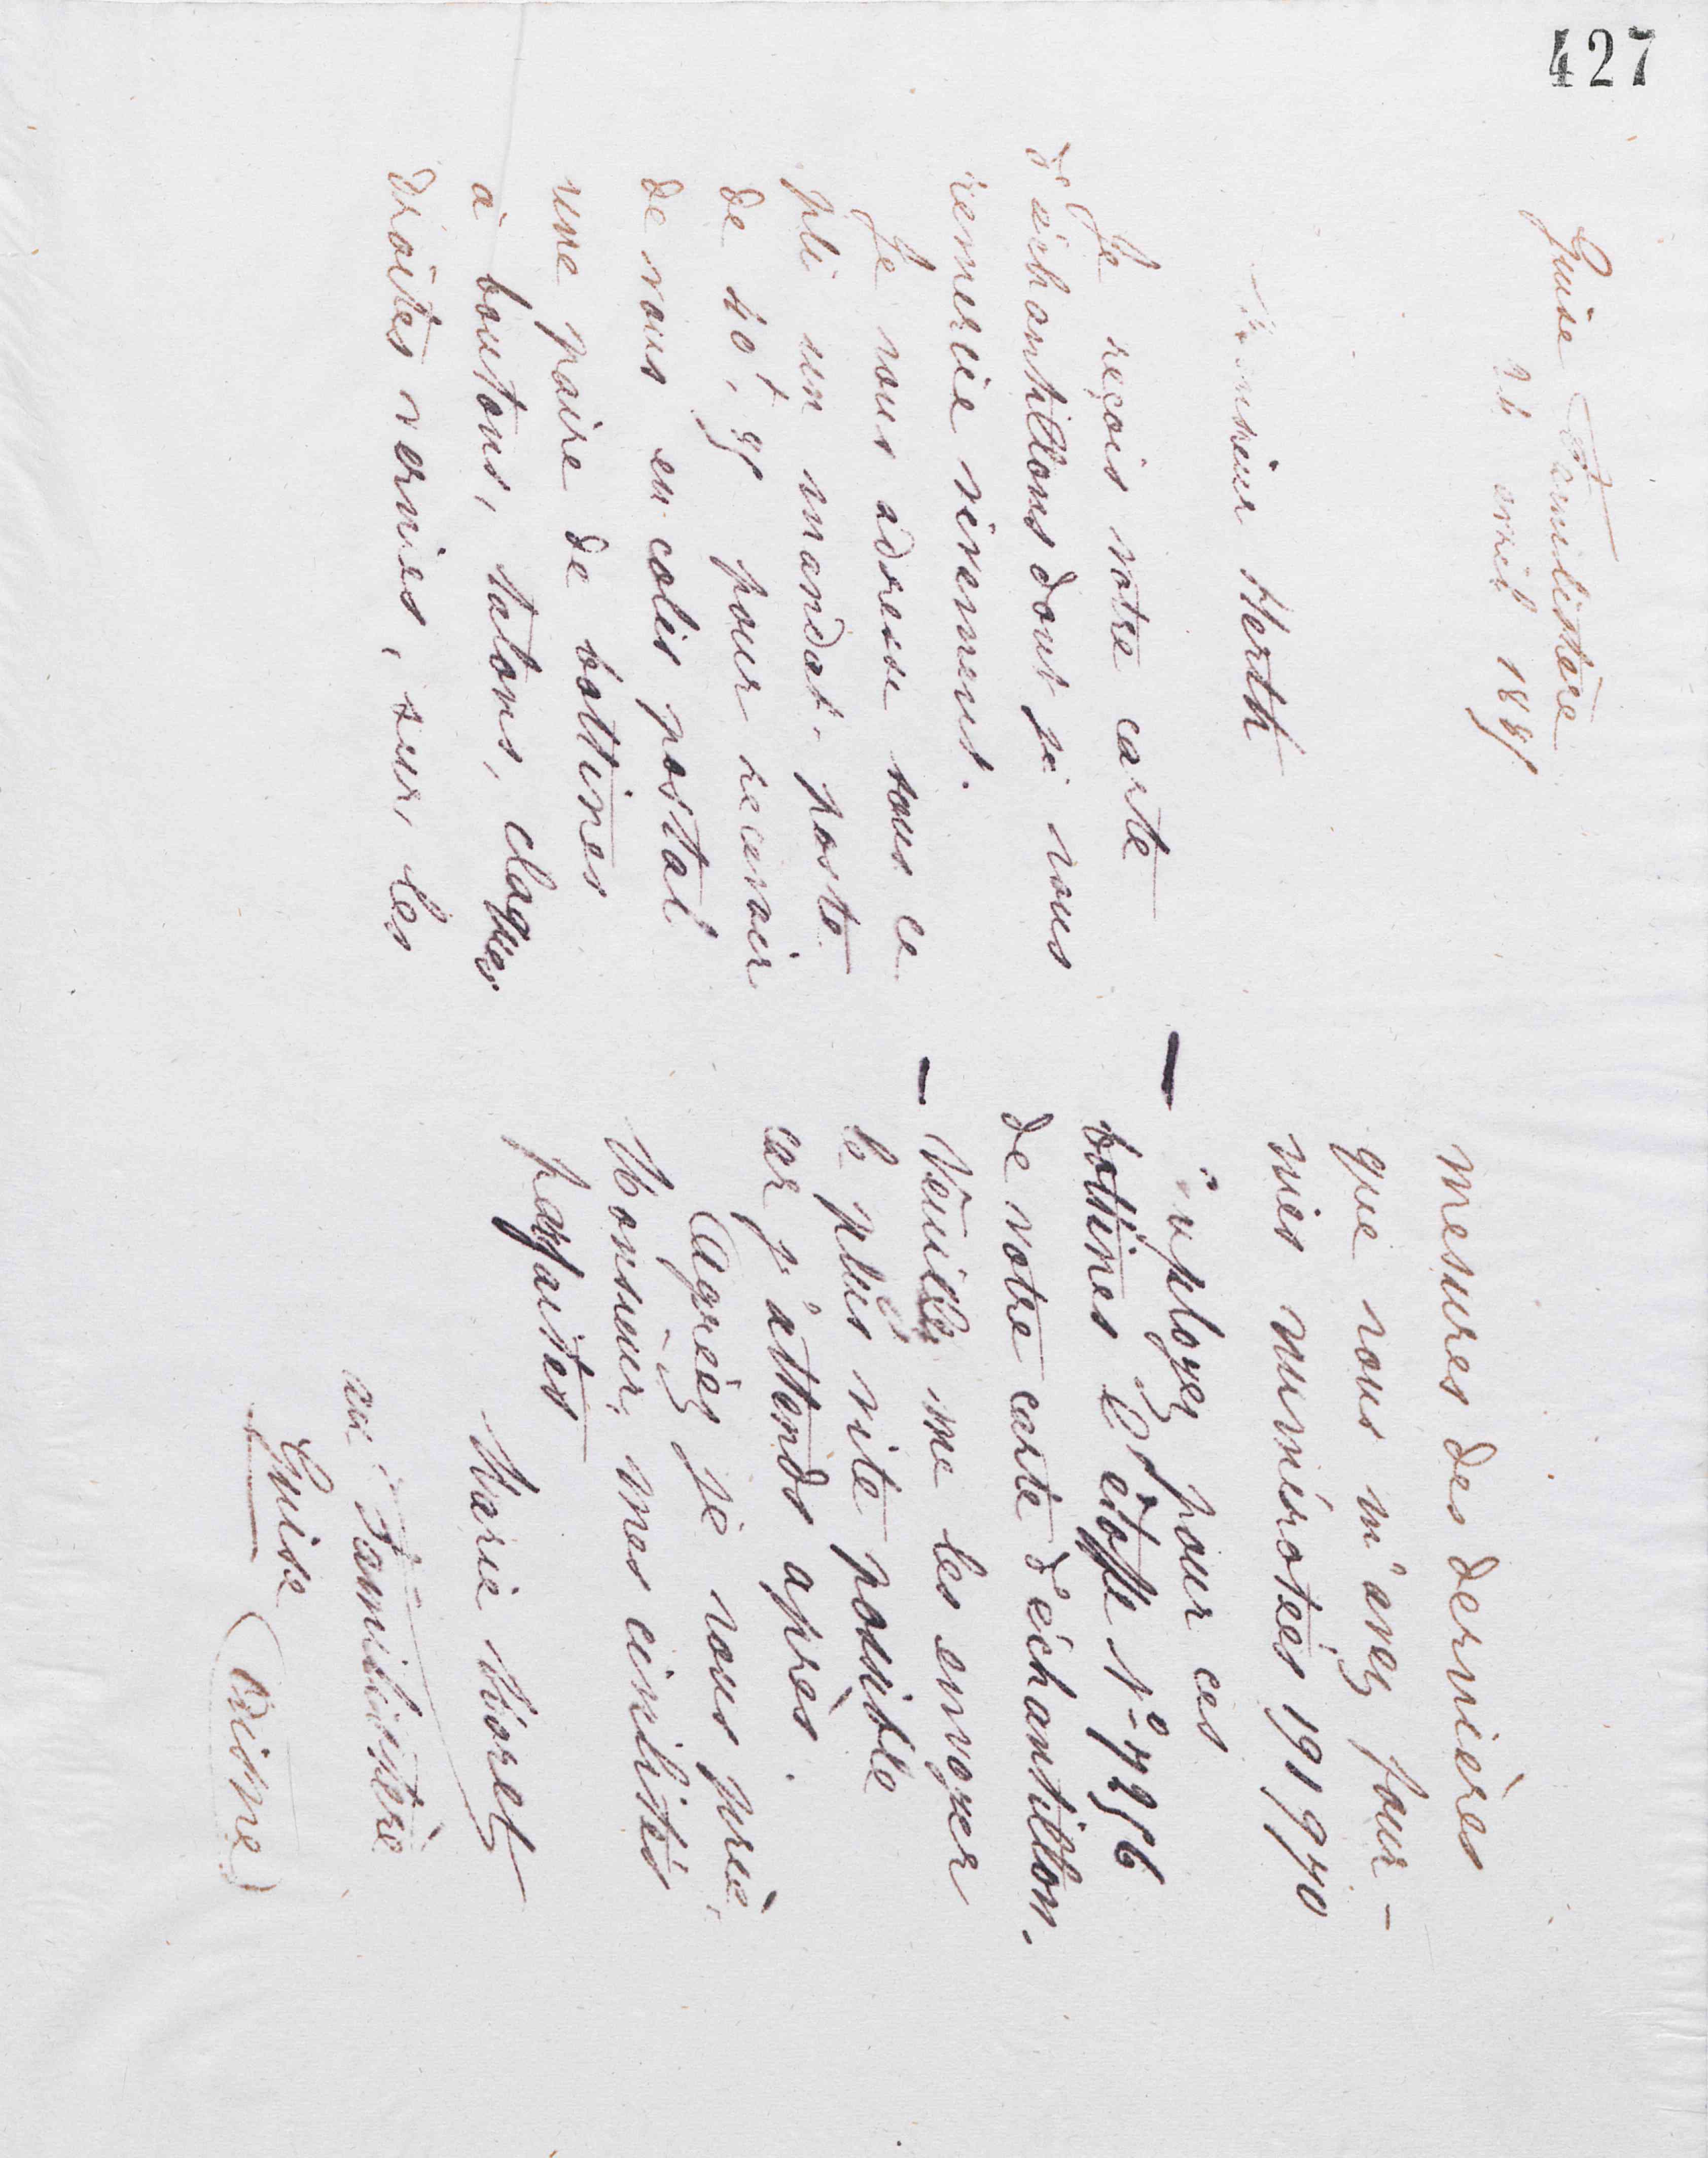 427
Guise Familistère
26 avril 1889
Monsieur Herth
Je reçois votre carte
d'échantillons dont je vous
remercie vivement.
Je vous adresse sous ce
pli un mandat-poste
de pour recevoir
de vous en colis postal
une paire de bottines
à boutons, talons, claques
droites vernies, sur les
mesures des dernières
que vous m'avez four-
nies numérotées 191970
Employez pour ces
bottines l'étoffe No 7956
de votre carte d'échantillon.
Veuillez me les envoyer
le plus vite possible
car j'attends après.
Agréez je vous prie,
Monsieur, mes civilités
parfaites
Marie Moret
au Familistère
Guise
(Aisne)